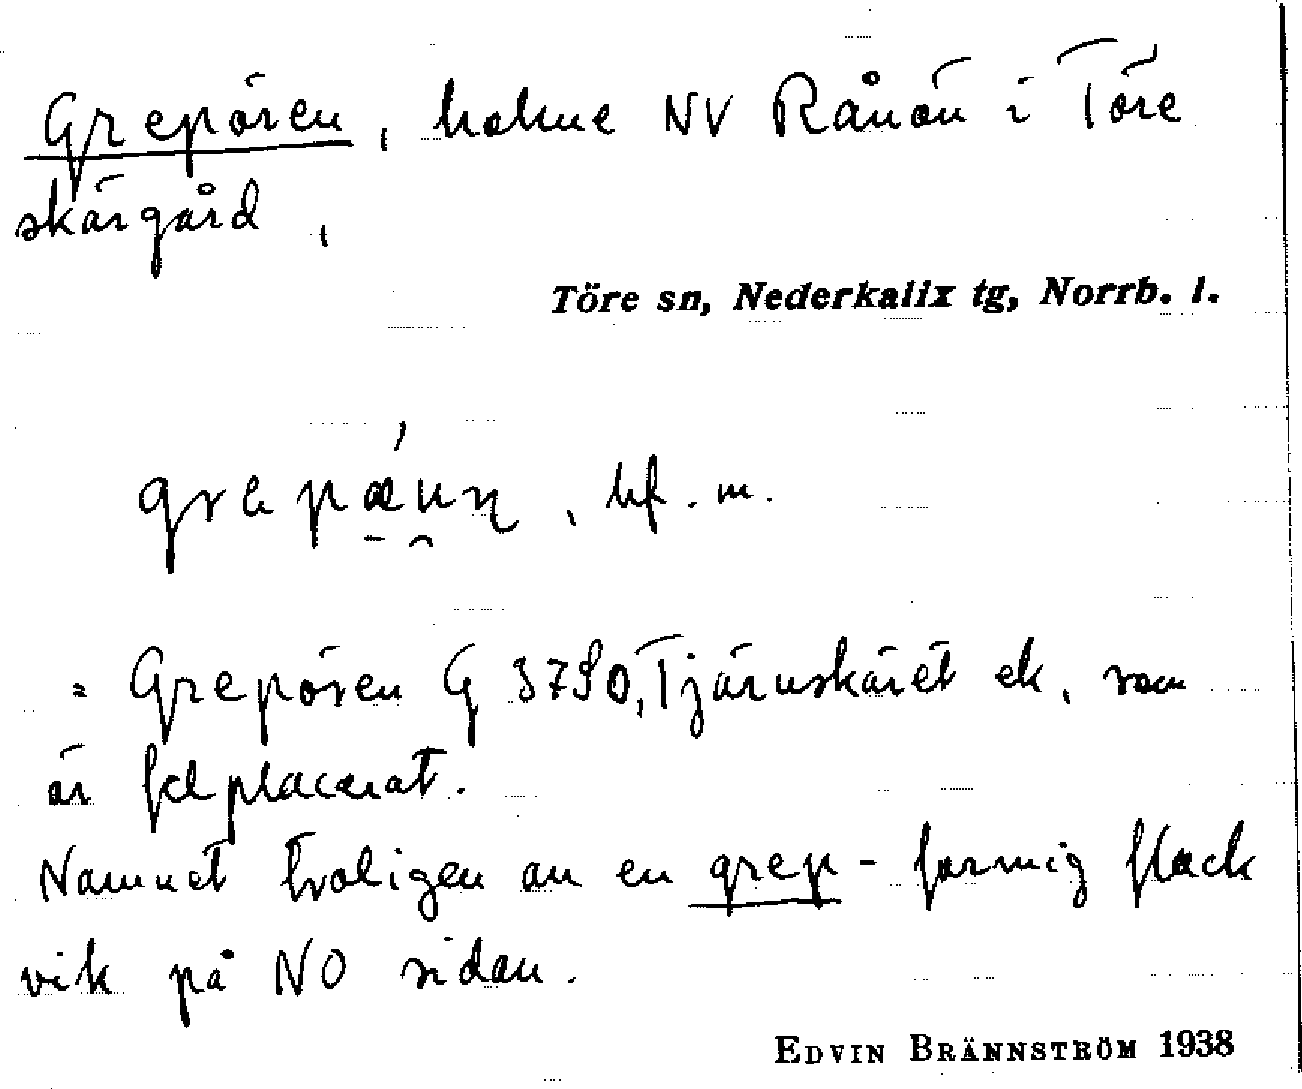 Grepören, holme NV Rånön i Töre
skärgård,
Töre sn, Nederkalix tg, Norrb. l.
bf. m.
= Grepören G 3790, Tjärnskäret ek, som
är felplacerat.
Namnet troligen av en grep-formig flack
vik på NO sidan.
EDVIN BRÄNNSTRÖM 1938